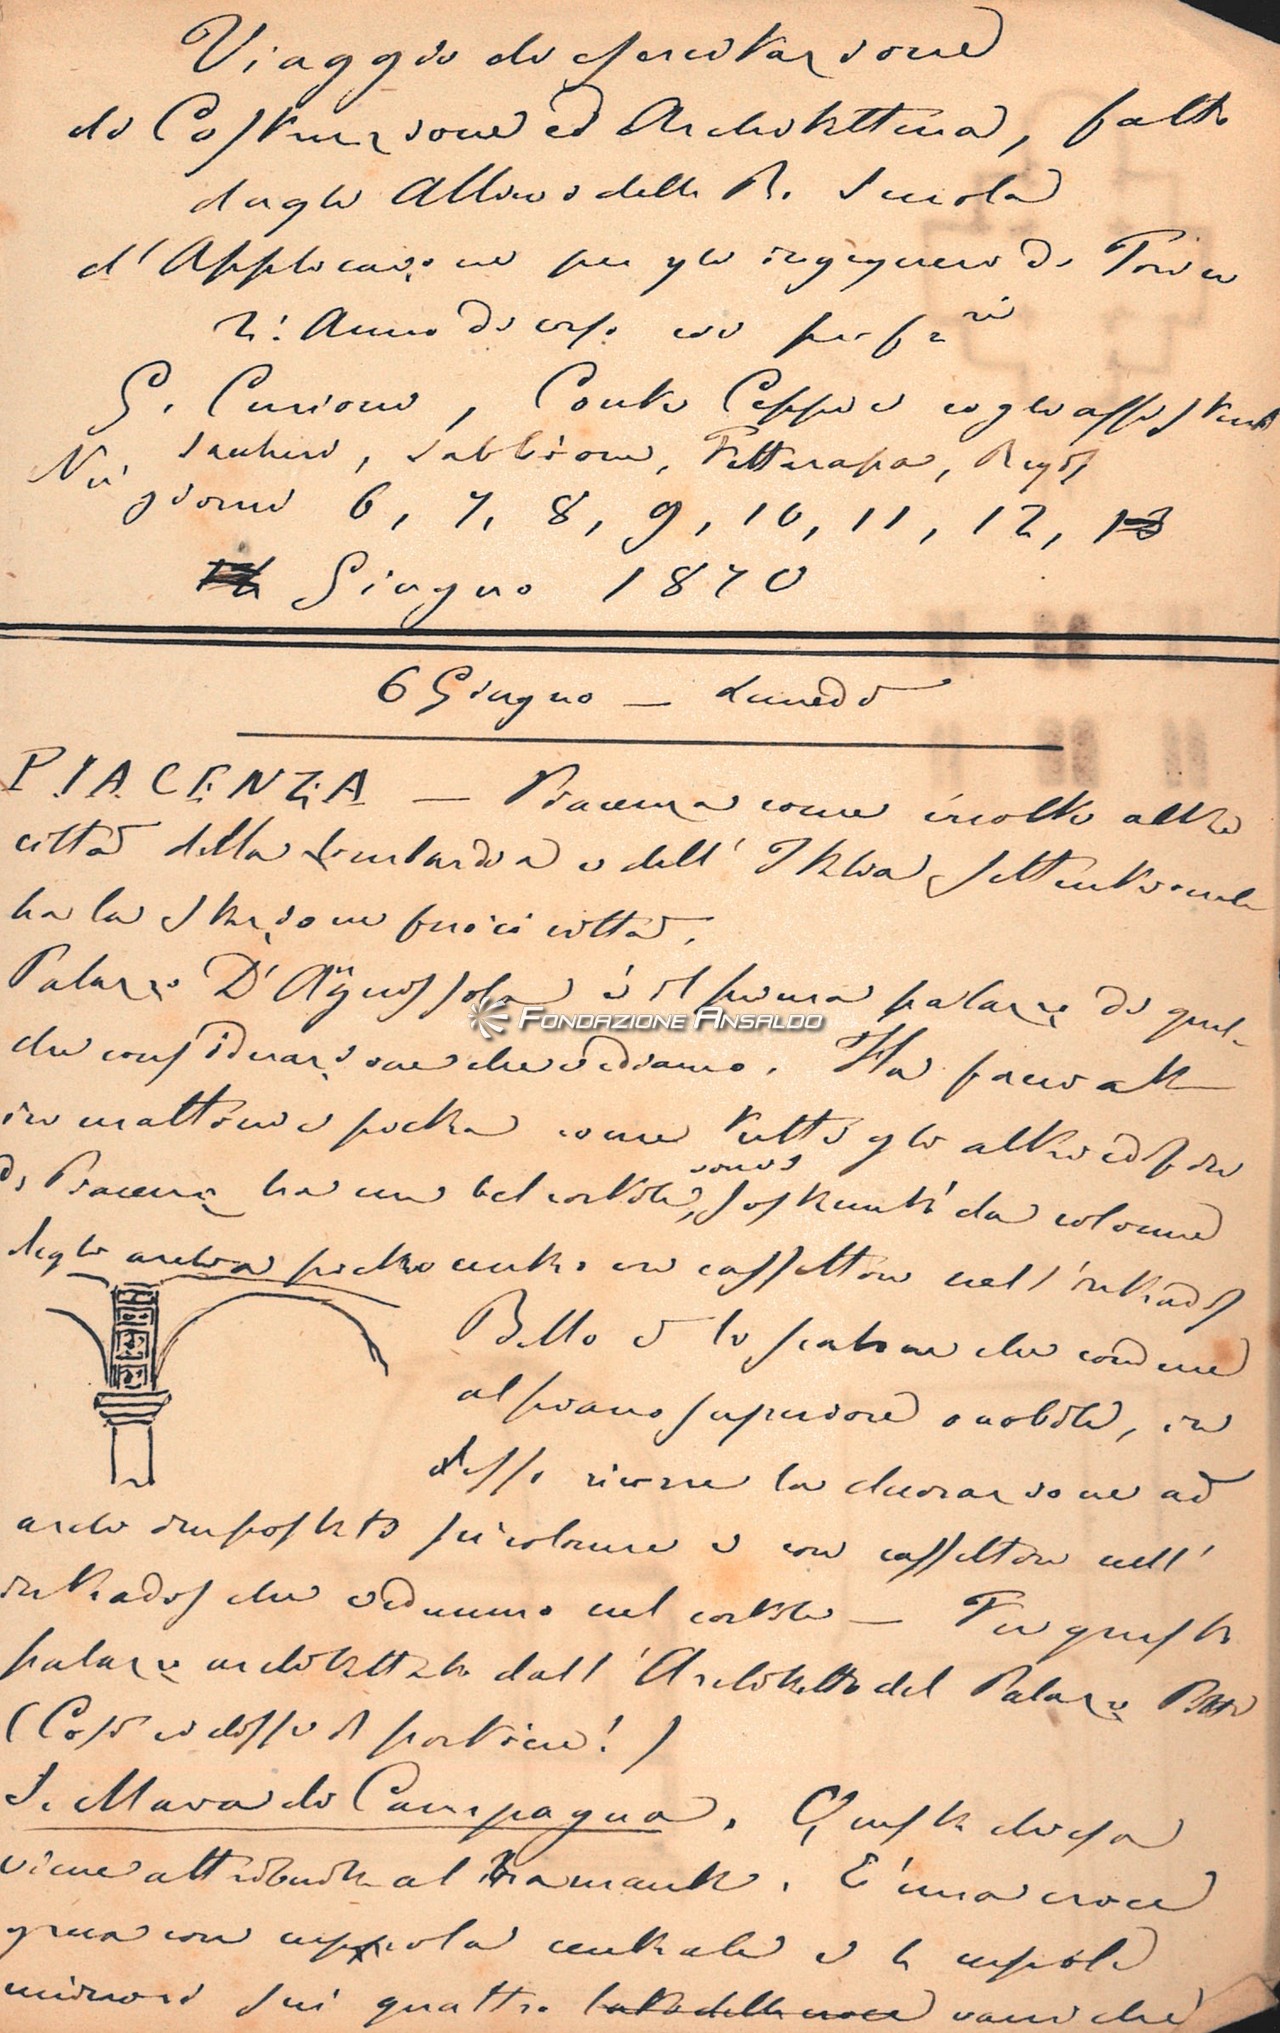 Viaggio di esercitazione
di Costruzione ed Architettura, fatto
dagli Allievi della R. Scuola
d'Applicazione per gli ingegneri di Torino
2º Anno di corso coi prof.ri
G. Curioni, Conte Ceppi e cogli assistenti
Sacheri, Sabbione, Fettarapa, Regis
Nei giorni 6, 7, 8, 9, 10, 11, 12, 13
Giugno 1870
6 Giugno — Lunedì
PIACENZA — Piacenza come molte altre
città della Lombardia e dell' Italia settentrionale
ha la stazione fuori città.
Palazzo D'Anguissola è il primo palazzo di qual-
che considerazione che vediamo. Ha facciata
in mattoni e pietra come tutti gli altri edifizi
di Piacenza ha un bel cortile, sonvi sostenuti da colonne
degli archi a pietra con cassettoni nell'intrados
Bello è lo scalone che conduce
al piano superiore o nobile, in
desso ricorre la decorazione ad
archi impostati su colonne e con cassettoni nell'
intrados che vedemmo nel cortile — Fu questo
palazzo architettato dall'Architetto del Palazzo
(Così ci disse il portiere!)
S. Maria di Campagna. Questa chiesa
viene attribuita al Bramante. È una croce
greca con cupola centrale e 4 cupole
minori sui quattro lati della croce vani che
FONDAZIONE ANSALDO